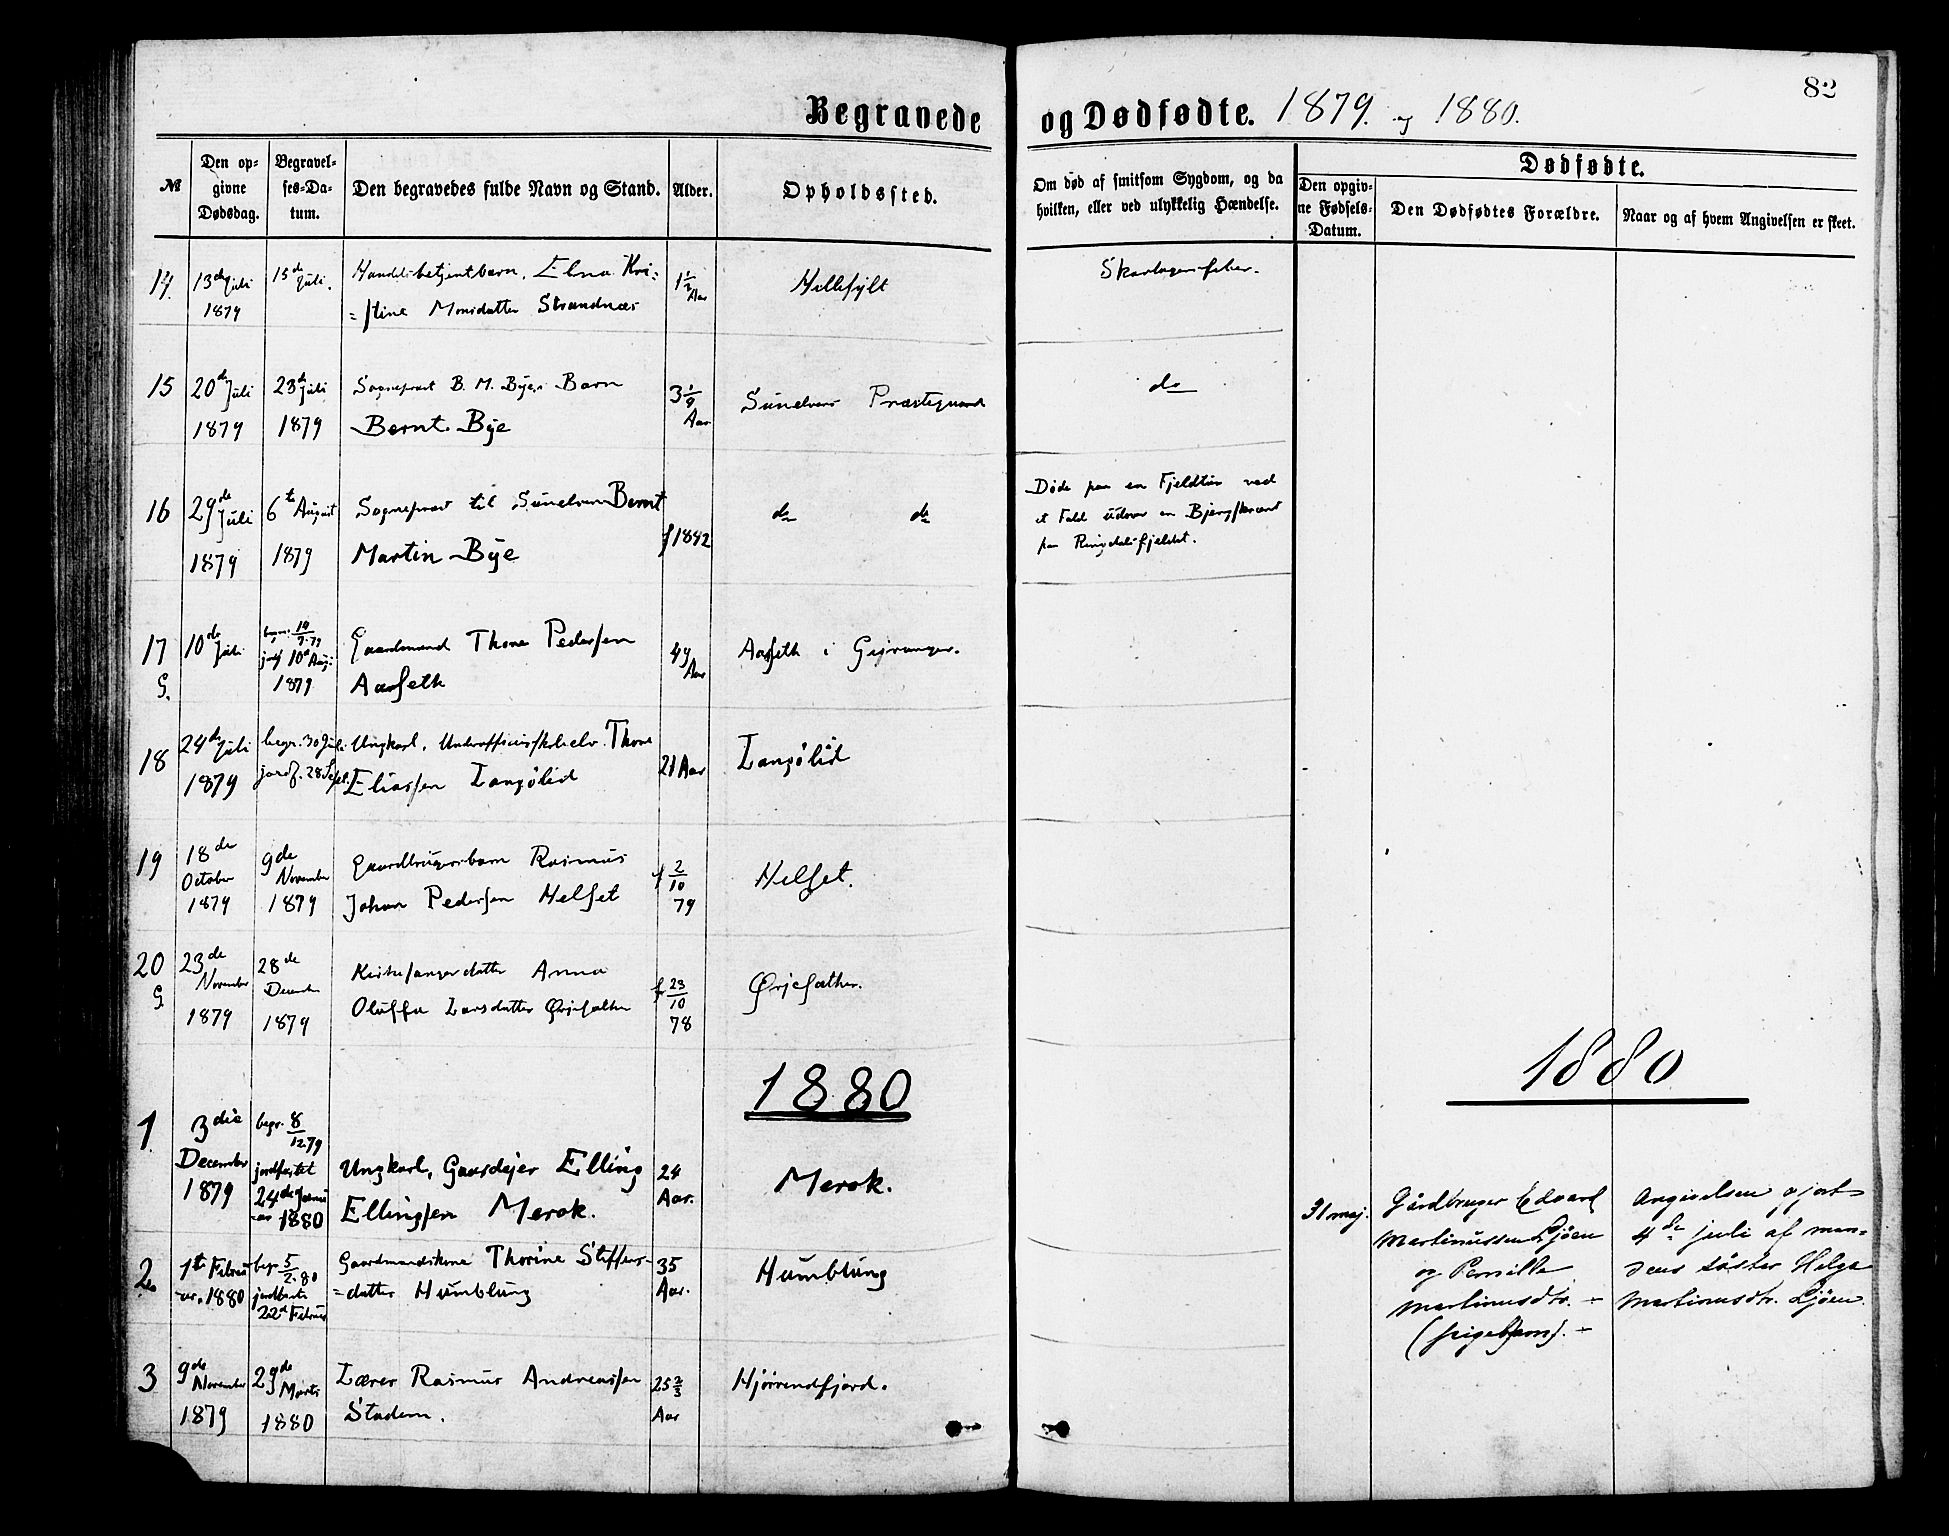 82
Begravede og Dødfødte. 1879. og 1880.
№
Den opgivne Dødsdag.
Begravelses-Datum.
Den begravedes fulde Navn og Stand.
Alder.
Opholdssted.
Om død af smitsom Sygdom, og da hvilken, eller ved ulykkelig Hændelse.
Dødfødte.
Den opgivne Fødsels-Datum.
Den Dødfødtes Forældre.
Naar og af hvem Angivelsen er skeet.
14. 13de Juli 1879
15de Juli.
Elna Kri=
=stine Monsdatter Strandnæs
1 1/2 Aar
Hellesylt
15 20de Juli 1879
23de Juli 1879
Sogneprest B. M. Byes Barn
Bernt Bye
Aar
Sunelvens Præstegaard
do
16 29de Juli 1879
6te August 1879
Sogneprest til Sunelven Bernt
Martin Bye
f 1842
do do
Døde paa en Fjeldtur ved
et Fald udover en Bjergskrænt
paa Ringdalsfjeldet.
17 G. 10de Juli
10de Aug. 1879
Gaardmand Thore Pedersen
Aarseth
Aar
Aarseth i Gejranger.
18 24de Juli 1879
begr. 30 Juli
jordf. 28 Sept.
Ungkarl, Underofficiersskoleelv Thore
Eliassen Langölid
21 Aar
Langölid
19 18de October 1879
9de November 1879
Gaardbrugersbarn Rasmus
Johan Pedersen Helset
f 2/10 79
Helset.
20 G. 23de November 1879
28de December 1879
Kirkesangerdatter Anna
Oluffa Larsdatter Ørjesæther
f 23/10 78
Ørjesæther.
1880
1880
1 3die December 1879
begr. 8/12.79
jordfæstet
24de Janu
=ar 1880
Ungkarl, Gaardejer Elling
Ellingsen Merok.
24 Aar.
Merok.
2. 1ste Febru
=ar. 1880
begr. 5/2.80
22de Februar
Gaardmandskone Thorine Steffens=
=datter Humblung
35 Aar.
Humblung
3 9de November 1879
29de Marts 1880
Lærer Rasmus Andreassen
Stadem.
25 2/3 Aar
Hjörrendfjord.
31 maj.
Gårdbruger Edvard
Martinussen Ljøen
og Pernille
Martinusdtr. -
(pigebarn). -
Angivelsen gjort
4de juli af man-
dens søster Helga
Martinusdtr. Ljøen.